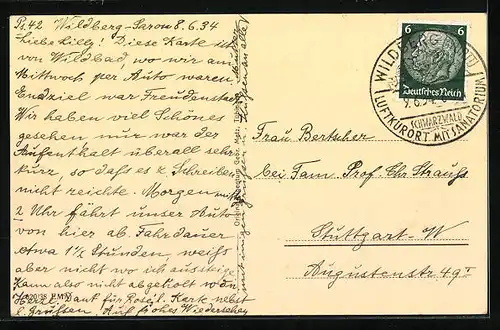 Ps. 42. Wildberg-Saron 8.6.34
Liebe Lilly! Diese Karte ist
von Wildbad, wo wir am
Mittwoch per Auto waren,
Endziel war Freudenstadt
Wir haben viel Schönes
gesehen nur war der
Aufenthalt überall sehr
kurz, so dass es z. Schreiben
nicht reichte. Morgen mitt.
2 Uhr fährt unser Auto
von hier ab. Fahrdauer
etwa 1½ Stunden, weiss
aber nicht wo ich aussteige
Kann also nicht abgeholt wdn
Herzl. Dank für Karte nebst
l. Grüssen. Auf frohes Wiedersehen
6
6
Deutsches Reich
WILDBERG
9.6.34
SCHWARZWALD
LUFTKURORT MIT SANATORIUM
Frau Bertscher
bei Fam. Prof. Chr. Strauss
Stuttgart-W
Augustenstr. 49 I